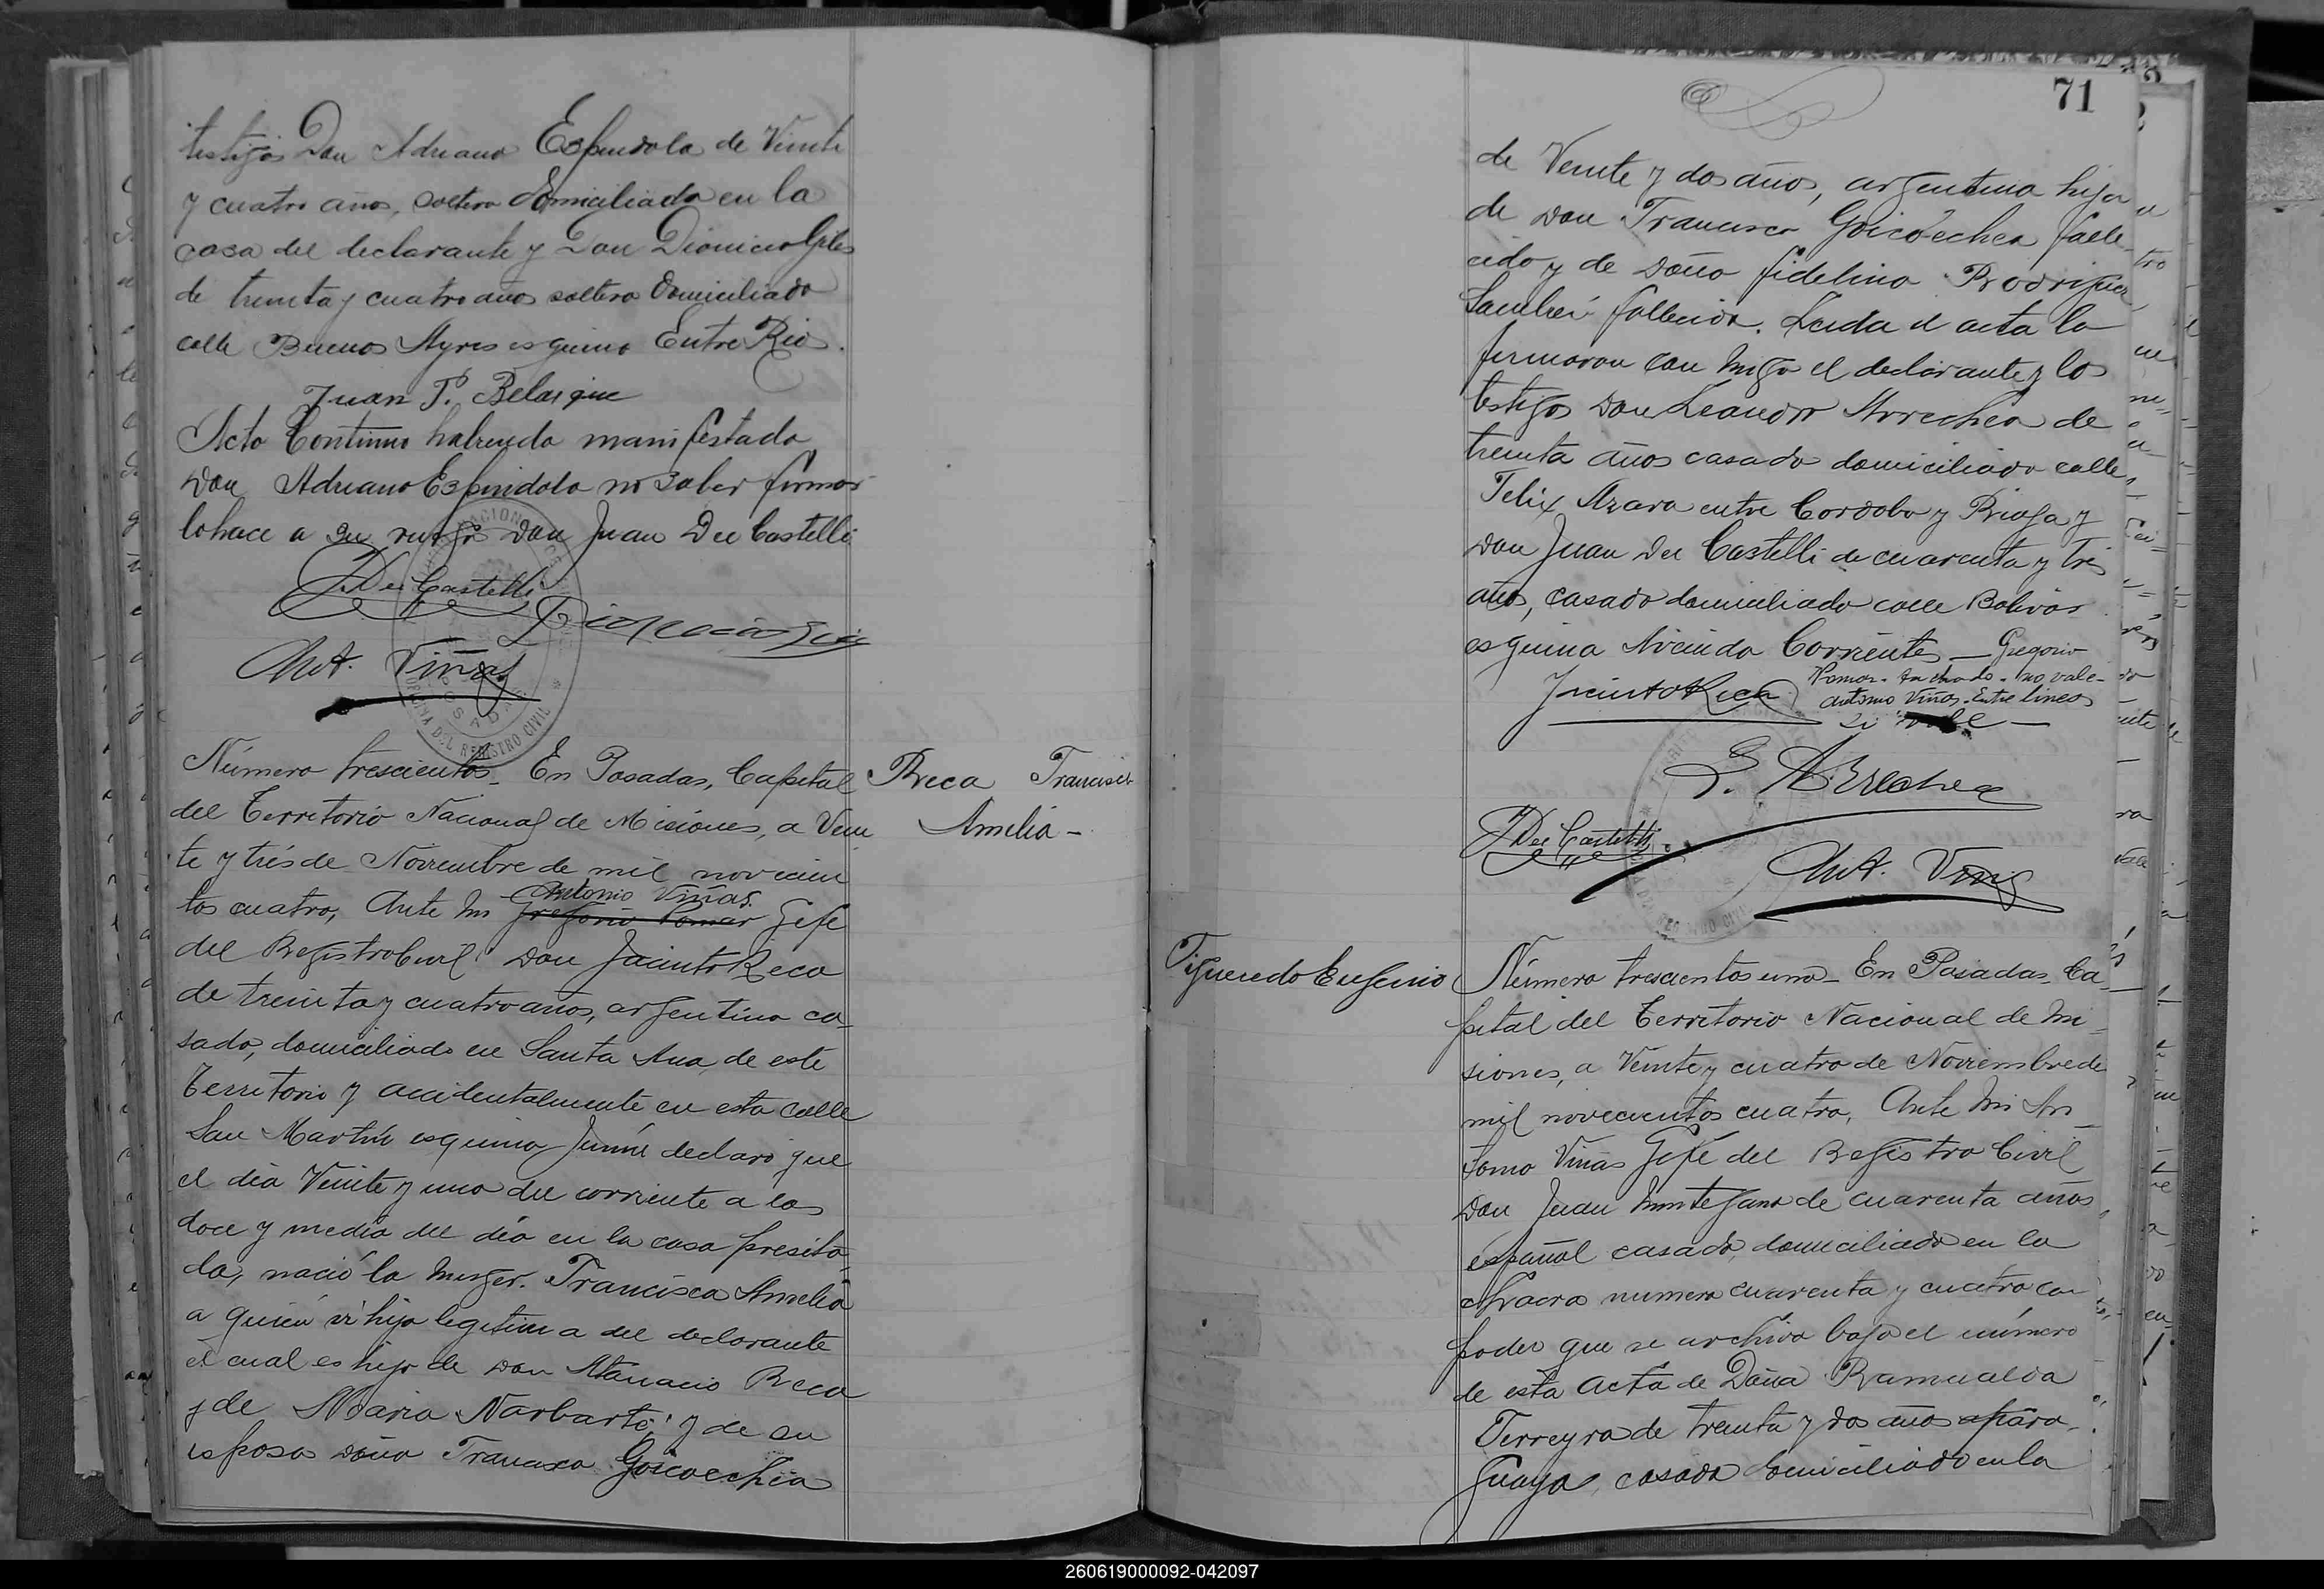 testigos Don Adriano Espindola de Veinte
y cuatro años, soltero domiciliado en la
casa del declarante y Don Dionicio Giles
de treinta y cuatro años soltero domiciliado
calle Buenos Ayres esquina Entre Rios.
Juan P. Belarque
Acto Continuo habiendo manifestado
Don Adriano Espindola no saber firmar
lo hace a su ruego Don Juan Dei Castelli
J Dei Castelli
Ant. Viñas
OFICINA DEL REGISTRO CIVIL
POSADAS
Número trescientos_ En Posadas, Capital
del Territorio Nacional de Misiones, a Vein
te y trés de Noviembre de mil novecien
Antonio Viñas
tos cuatro, Ante mi Gregorio Pomar Gefe
del Registro Civil Don Jacinto Reca
de treinta y cuatro años, argentino ca_
sado, domiciliado en Santa Ana, de este
Territorio y accidentalmente en esta calle
San Martin esquina Junin declaró que
el dia Veinte y uno del corriente a las
doce y media del dia en la casa presita_
da, nació la muger. Francisca Amelia
a quien vi hija legitima del declarante
el cual es hijo de Don Atanacio Reca
y de Maria Narbarte, y de su
esposa doña Francisca Goicoechea
Reca Francisca
Amelia -
71
de Veinte y dos años, argentina hija
de Don Francisco Goicoechea falle_
cido y de doña fidelina Rodriguez
fallecida. Leida el acta la
firmaron con migo el declarante y los
testigos Don Leandro Arrechea de
treinta años casado domiciliado calle
Felix Azara entre Cordoba y Rioja y
Don Juan Dei Castelli de cuarenta y tres
años, casado domiciliado calle Bolivar
esquina Avenida Corrientes — Gregorio
Pomar - tachado - no vale -
Antonio Viñas - Entre lineas
Si vale —
Jacinto Reca
L. Arrechea
J Dei Castelli
Ant. Viñas
Figueredo Eugenio
Número trescientos uno_ En Posadas, Ca_
pital del Territorio Nacional de Mi_
siones, a Veinte y cuatro de Noviembre de
mil novecientos cuatro, Ante mi An_
tonio Viñas Gefe del Registro Civil
Don Juan Montejano de cuarenta años
español casado, domiciliado en la
chacra numero cuarenta y cuatro con
poder que se archiva bajo el número
de esta acta de Doña Ramualda
Ferreyra de treinta y dos años apara_
guaya, casada domiciliado en la
260619000092-042097